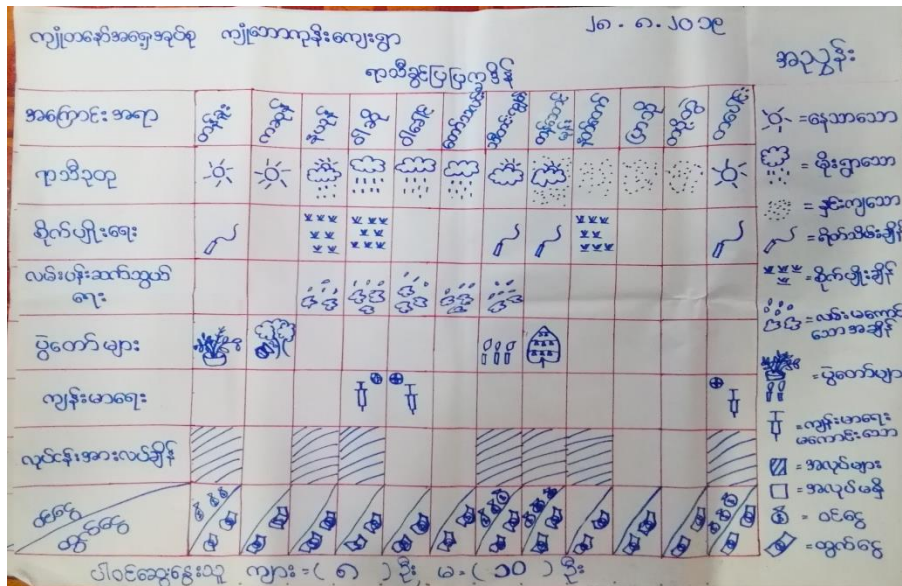 ကျုံတနော်အရှေ့အုပ်စု ကျုံဘောကုန်းကျေးရွာ ၂၈.၈.၂၀၁၉
ရာသီခွင်ပြပြက္ခဒိန်
အညွှန်း
အကြောင်းအရာ တန်ခူး ကဆုန် နယုန် ဝါဆို ဝါခေါင် တော်သလင်း သီတင်းကျွတ် တန်ဆောင်မုန်း နတ်တော် ပြာသို တပို့တွဲ တပေါင်း
ရာသီဥတု
စိုက်ပျိုးရေး
လမ်းပန်းဆက်သွယ်
ရေး
ပွဲတော်များ
ကျန်းမာရေး
လုပ်ငန်းအားလပ်ချိန်
ဝင်ငွေ
ထွက်ငွေ
= နေသာသော
= မိုးရွာသော
= နှင်းကျသော
= ရိတ်သိမ်းချိန်
= စိုက်ပျိုးချိန်
= လမ်းမကောင်း
သောအချိန်
= ပွဲတော်များ
= ကျန်းမာရေး
မကောင်းသော
= အလုပ်များ
= အလုပ်မရှိ
= ဝင်ငွေ
= ထွက်ငွေ
ပါဝင်ဆွေးနွေးသူ ကျား = ( ၈ ) ဦး မ = ( ၁၀ ) ဦး